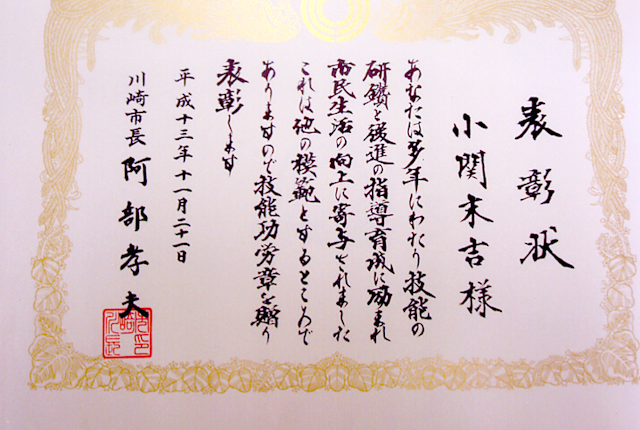 表彰状
小関末吉様
あなたは多年にわたり技能の
研鑽と後進の指導育成に励まれ
市民生活の向上に寄与されました
これは他の模範とするところで
ありますので技能功労章を贈り
表彰します
平成十三年十一月二十一日
川崎市長 阿部孝夫